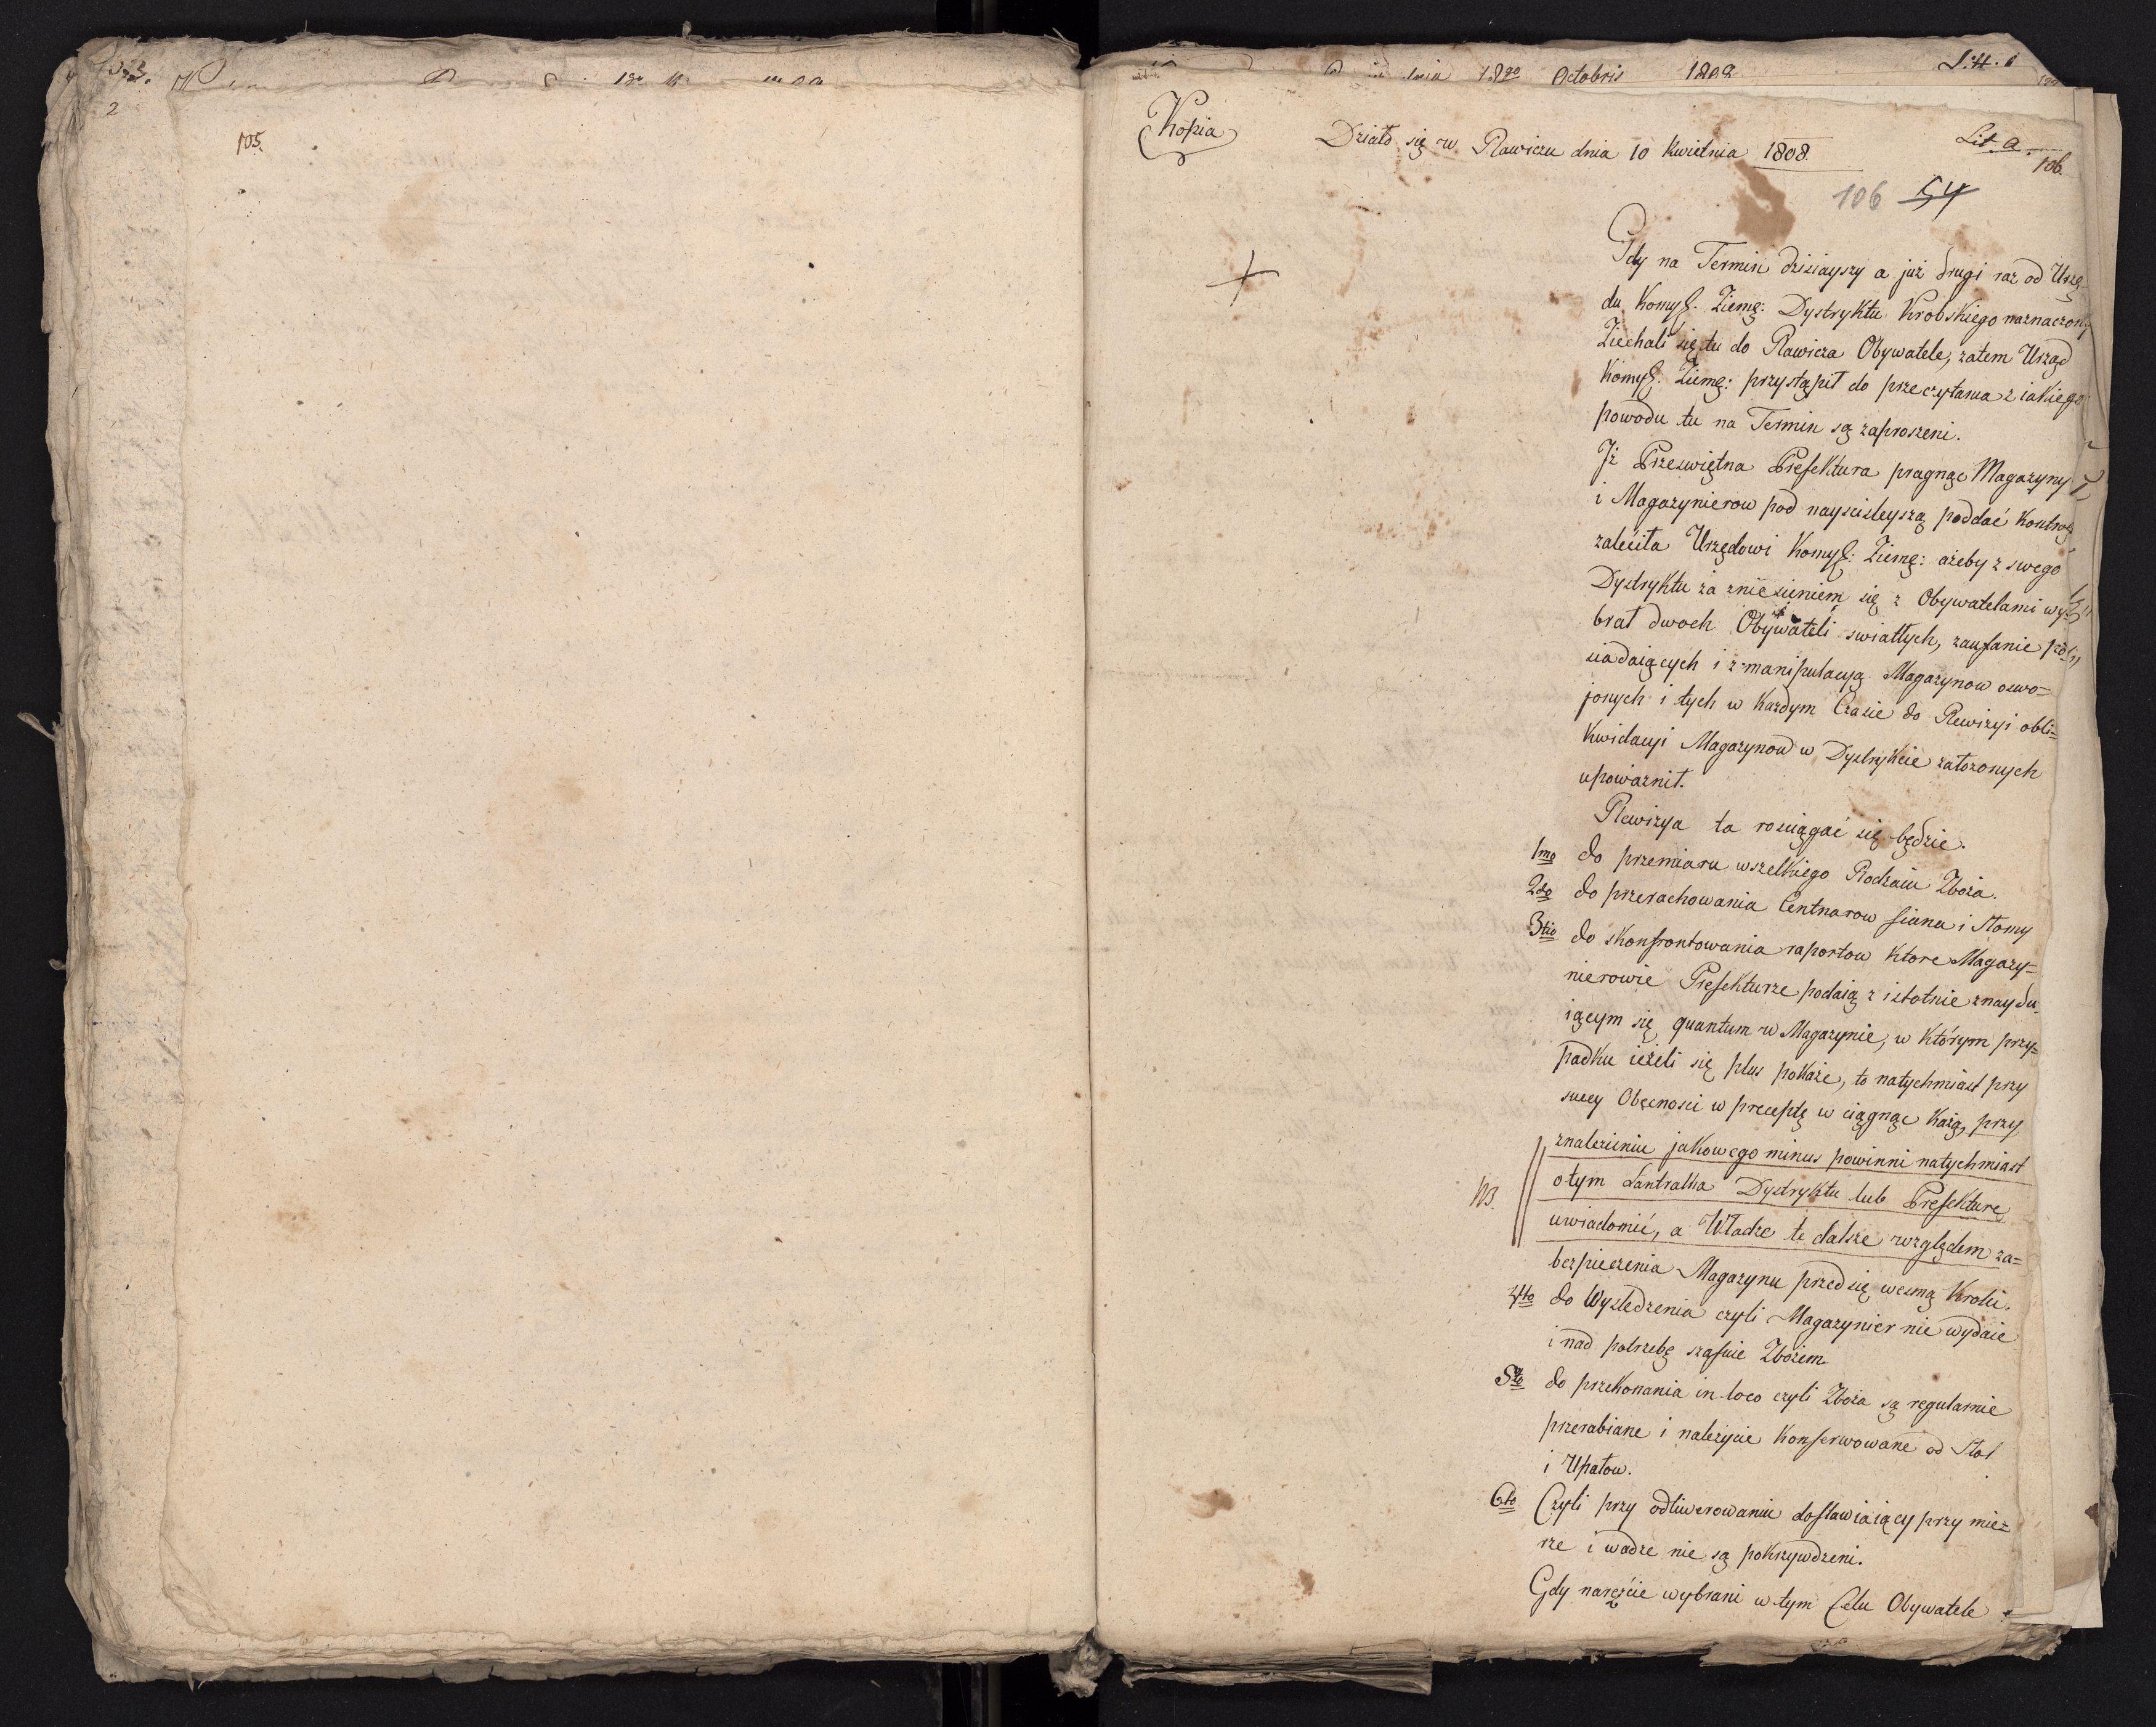 2
105.
dnia 18go Octobris 1808
Litt.
Kopia
Działo się w Rawiczu dnia 10 Kwietnia 1808.
Lit. a.
106.
106 54
Gdy na Termin dzisiayszy a już drugi raz od Urzę-
du Komyss. Ziemę: Dystryktu Krobskiego naznaczony
Ziechali się tu do Rawicza Obywatele, zatem Urząd
Komyss: Ziemę: przystąpił do przeczytania z iakiego
powodu tu na Termin są zaproszeni.
Jż Przeświętna Prefektura pragnąc Magazyny
i Magazynierow pod nayscisleyszą poddać Kontrolę
zaleciła Urzędowi Komyss: Ziemę: ażeby z swego
Dystryktu za zniesieniem się z Obywatelami wy-
brał dwoch Obywateli swiatłych, zaufanie po-
siadaiących i z manipulacyą Magazynow oswo=
jonych i tych w każdym Czasie do Rewizyi obli=
kwidacyi Magazynow w Dystrykcie założonych
upoważnił.
Rewizya ta rosciągać się będzie.
1mo do przemiaru wszelkiego Rodzaiu Zboża.
2do do przerachowania Centnarow siana i Słomy
3tio do skonfrontowania raportow które Magazy=
nierowie Prefekturze podaią z istotnie znaydu-
iącym się quantum w Magazynie, w którym przy=
padku ieżeli się plus pokaże, to natychmiast przy
swey Obecnosci w preceptę w ciągnąc każą, przy
znalezieniu jakowego minus powinni natychmiast
NB. o tym Lantratha Dystryktu lub Prefekturę
uwiadomić, a Władze te dalsze względem za=
bezpieczenia Magazynu przedsię wezmą Kroki.
4to do Wysledzenia czyli Magazynier nie wydaie
i nad potrzebę szafuie Zbożem
5to do przekonania in loco czyli Zboża są regularnie
przerabiane i należycie konserwowane od Słot
i Upałow.
6to Czyli przy odliwerowaniu dostawiaiący przy mie=
rze i wadze nie są pokrzywdzeni.
Gdy nareście wybrani w tym Celu Obywatele